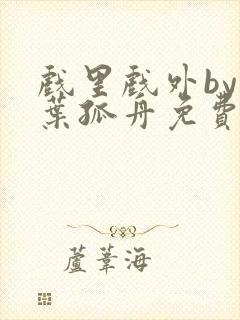 戲里戲外by
葉孤舟免費
蘆葦海